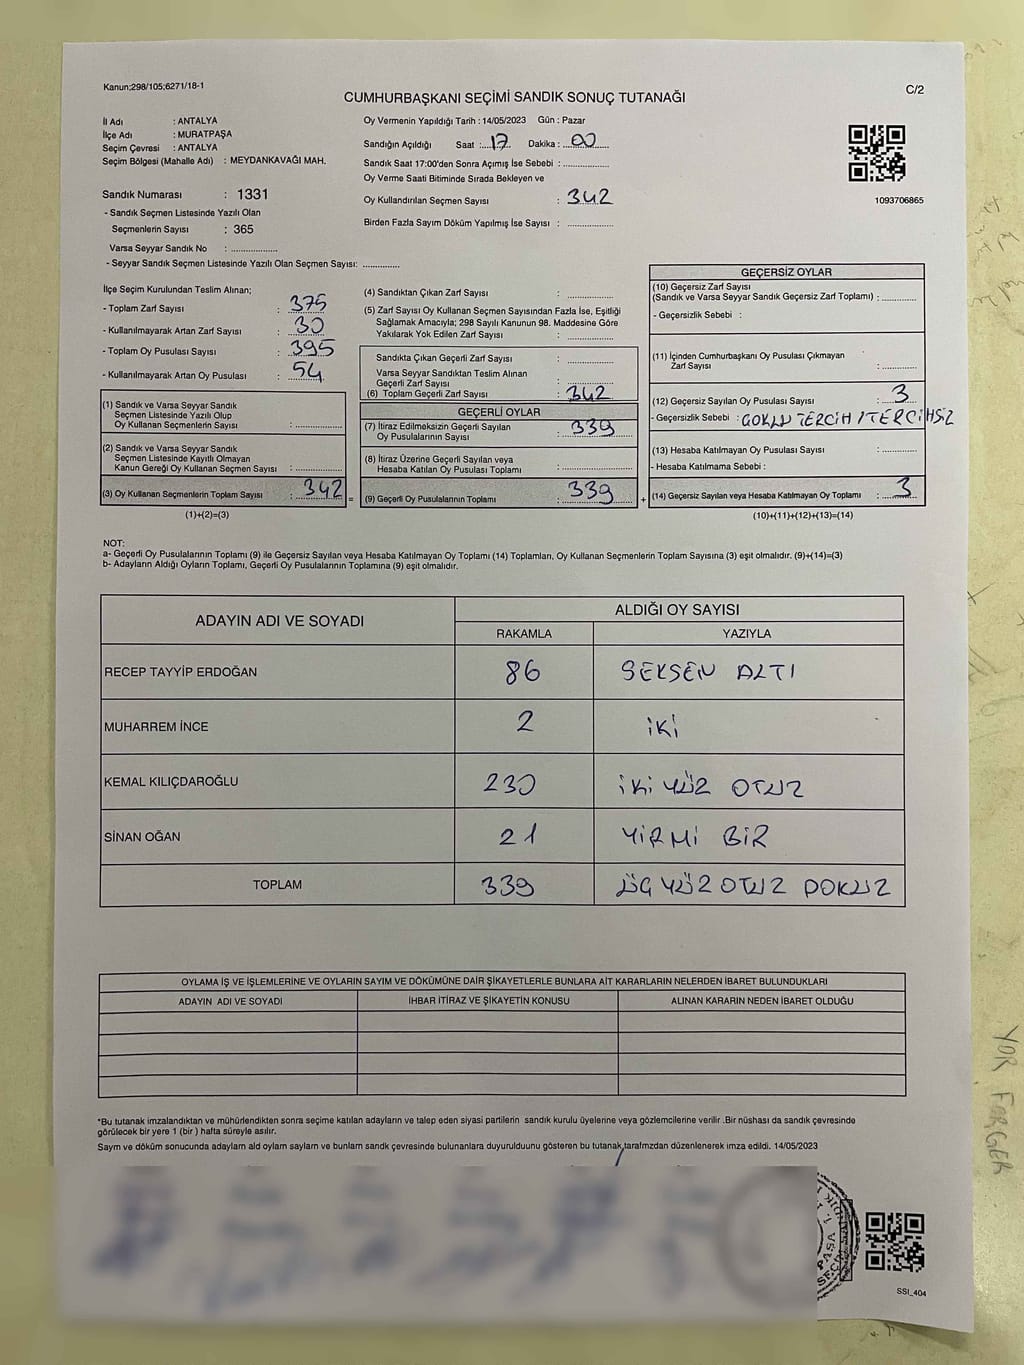 Kanun;298/105;6271/18-1
CUMHURBAŞKANI SEÇİMİ SANDIK SONUÇ TUTANAĞI
C/2
İl Adı : ANTALYA
İlçe Adı : MURATPAŞA
Seçim Çevresi : ANTALYA
Seçim Bölgesi (Mahalle Adı) : MEYDANKAVAĞI MAH.
Sandık Numarası : 1331
- Sandık Seçmen Listesinde Yazılı Olan
Seçmenlerin Sayısı : 365
Varsa Seyyar Sandık No : ..................
- Seyyar Sandık Seçmen Listesinde Yazılı Olan Seçmen Sayısı: ..............
Oy Vermenin Yapıldığı Tarih : 14/05/2023 Gün : Pazar
Sandığın Açıldığı Saat : 17 Dakika : 00
Sandık Saat 17:00'den Sonra Açımış İse Sebebi : ..................
Oy Verme Saati Bitiminde Sırada Bekleyen ve
Oy Kullandırılan Seçmen Sayısı : 342
Birden Fazla Sayım Döküm Yapılmış İse Sayısı : ..................
1093706865
İlçe Seçim Kurulundan Teslim Alınan;
- Toplam Zarf Sayısı : 375
- Kullanılmayarak Artan Zarf Sayısı : 30
- Toplam Oy Pusulası Sayısı : 395
- Kullanılmayarak Artan Oy Pusulası : 54
(1) Sandık ve Varsa Seyyar Sandık
Seçmen Listesinde Yazılı Olup
Oy Kullanan Seçmenlerin Sayısı : ..................
(2) Sandık ve Varsa Seyyar Sandık
Seçmen Listesinde Kayıtlı Olmayan
Kanun Gereği Oy Kullanan Seçmen Sayısı : ..................
(3) Oy Kullanan Seçmenlerin Toplam Sayısı : 342 =
(1)+(2)=(3)
(4) Sandıktan Çıkan Zarf Sayısı : ..................
(5) Zarf Sayısı Oy Kullanan Seçmen Sayısından Fazla İse, Eşitliği
Sağlamak Amacıyla; 298 Sayılı Kanunun 98. Maddesine Göre
Yakılarak Yok Edilen Zarf Sayısı : ..................
Sandıkta Çıkan Geçerli Zarf Sayısı : ..................
Varsa Seyyar Sandıktan Teslim Alınan
Geçerli Zarf Sayısı : ..................
(6) Toplam Geçerli Zarf Sayısı : 342
GEÇERLİ OYLAR
(7) İtiraz Edilmeksizin Geçerli Sayılan
Oy Pusulalarının Sayısı : 339
(8) İtiraz Üzerine Geçerli Sayılan veya
Hesaba Katılan Oy Pusulası Toplamı : ..................
(9) Geçerli Oy Pusulalarının Toplamı : 339 +
GEÇERSİZ OYLAR
(10) Geçersiz Zarf Sayısı
(Sandık ve Varsa Seyyar Sandık Geçersiz Zarf Toplamı) : ............
- Geçersizlik Sebebi :
(11) İçinden Cumhurbaşkanı Oy Pusulası Çıkmayan
Zarf Sayısı : ............
(12) Geçersiz Sayılan Oy Pusulası Sayısı : 3
- Geçersizlik Sebebi : ÇOKLU TERCİH / TERCİHSİZ
(13) Hesaba Katılmayan Oy Pusulası Sayısı : ............
- Hesaba Katılmama Sebebi :
(14) Geçersiz Sayılan veya Hesaba Katılmayan Oy Toplamı : 3
(10)+(11)+(12)+(13)=(14)
NOT:
a- Geçerli Oy Pusulalarının Toplamı (9) ile Geçersiz Sayılan veya Hesaba Katılmayan Oy Toplamı (14) Toplamları, Oy Kullanan Seçmenlerin Toplam Sayısına (3) eşit olmalıdır. (9)+(14)=(3)
b- Adayların Aldığı Oyların Toplamı, Geçerli Oy Pusulalarının Toplamına (9) eşit olmalıdır.
ADAYIN ADI VE SOYADI
ALDIĞI OY SAYISI
RAKAMLA YAZIYLA
RECEP TAYYİP ERDOĞAN 86 SEKSEN ALTI
MUHARREM İNCE 2 İKİ
KEMAL KILIÇDAROĞLU 230 İKİ YÜZ OTUZ
SİNAN OĞAN 21 YİRMİ BİR
TOPLAM 339 ÜÇ YÜZ OTUZ DOKUZ
OYLAMA İŞ VE İŞLEMLERİNE VE OYLARIN SAYIM VE DÖKÜMÜNE DAİR ŞİKAYETLERLE BUNLARA AİT KARARLARIN NELERDEN İBARET BULUNDUKLARI
ADAYIN ADI VE SOYADI İHBAR İTİRAZ VE ŞİKAYETİN KONUSU ALINAN KARARIN NEDEN İBARET OLDUĞU
*Bu tutanak imzalandıktan ve mühürlendikten sonra seçime katılan adayların ve talep eden siyasi partilerin sandık kurulu üyelerine veya gözlemcilerine verilir .Bir nüshası da sandık çevresinde
görülecek bir yere 1 (bir ) hafta süreyle asılır.
Saym ve döküm sonucunda adaylam ald oylam saylam ve bunlam sandk çevresinde bulunanlara duyurulduunu gösteren bu tutanak tarafmzdan düzenlenerek imza edildi. 14/05/2023
SSI_404
YOR FERGER